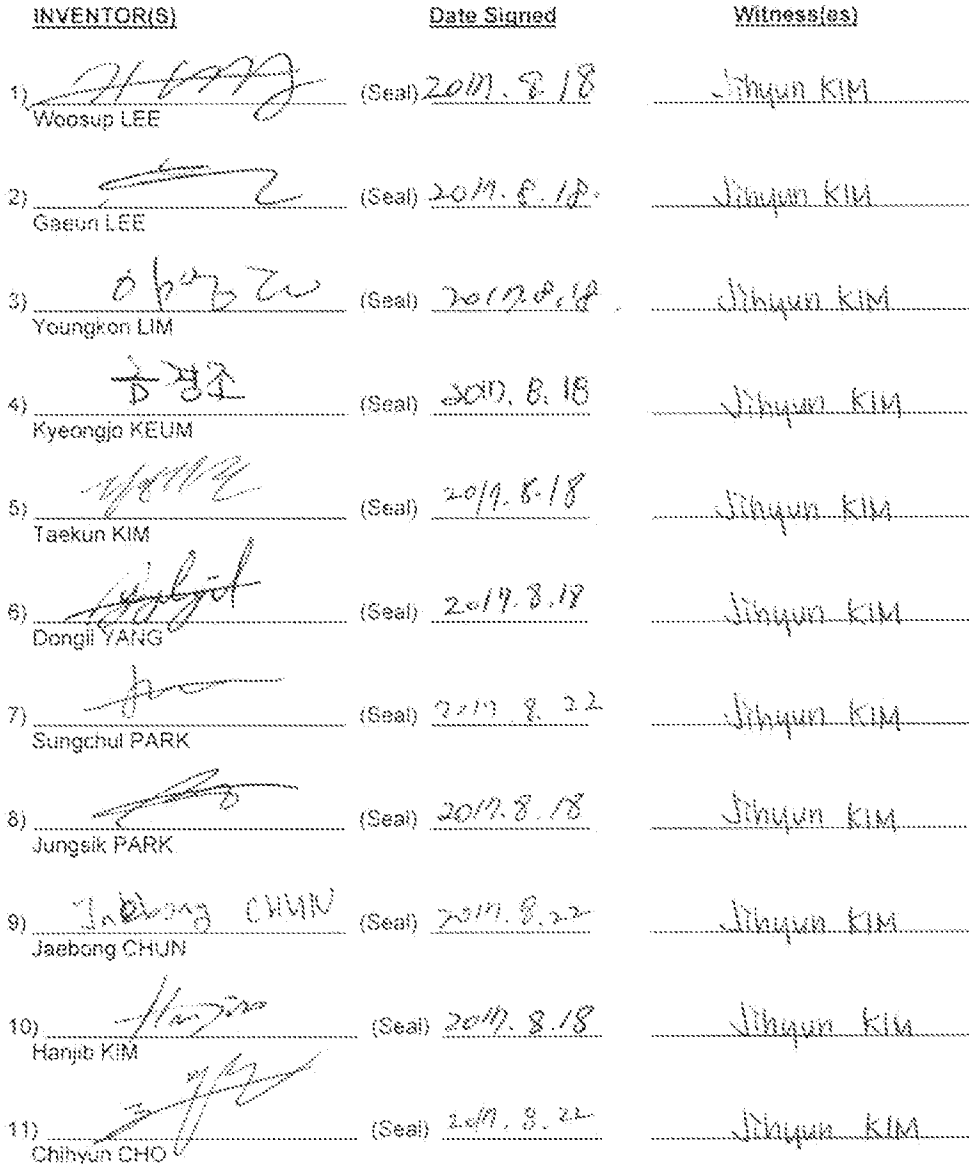 INVENTOR(S) Date Signed Witness(es)
1) (Seal) 2017. 8. 18 Jihyun KIM
Woosup LEE
2) (Seal) 2017. 8. 18. Jihyun KIM
Gaeun LEE
3) (Seal) 2017. 8. 18 Jihyun KIM
Youngkon LIM
4) 금경조 (Seal) 2017. 8. 18 Jihyun KIM
Kyeongjo KEUM
5) (Seal) 2017. 8. 18 Jihyun KIM
Taekun KIM
6) (Seal) 2017. 8. 18 Jihyun KIM
Dongil YANG
7) (Seal) 2017. 8. 22 Jihyun KIM
Sungchul PARK
8) (Seal) 2017. 8. 18 Jihyun KIM
Jungsik PARK
9) Jaebong CHUN (Seal) 2017. 8. 22 Jihyun KIM
Jaebong CHUN
10) (Seal) 2017. 8. 18 Jihyun KIM
Hanjib KIM
11) (Seal) 2017. 8. 22 Jihyun KIM
Chihyun CHO